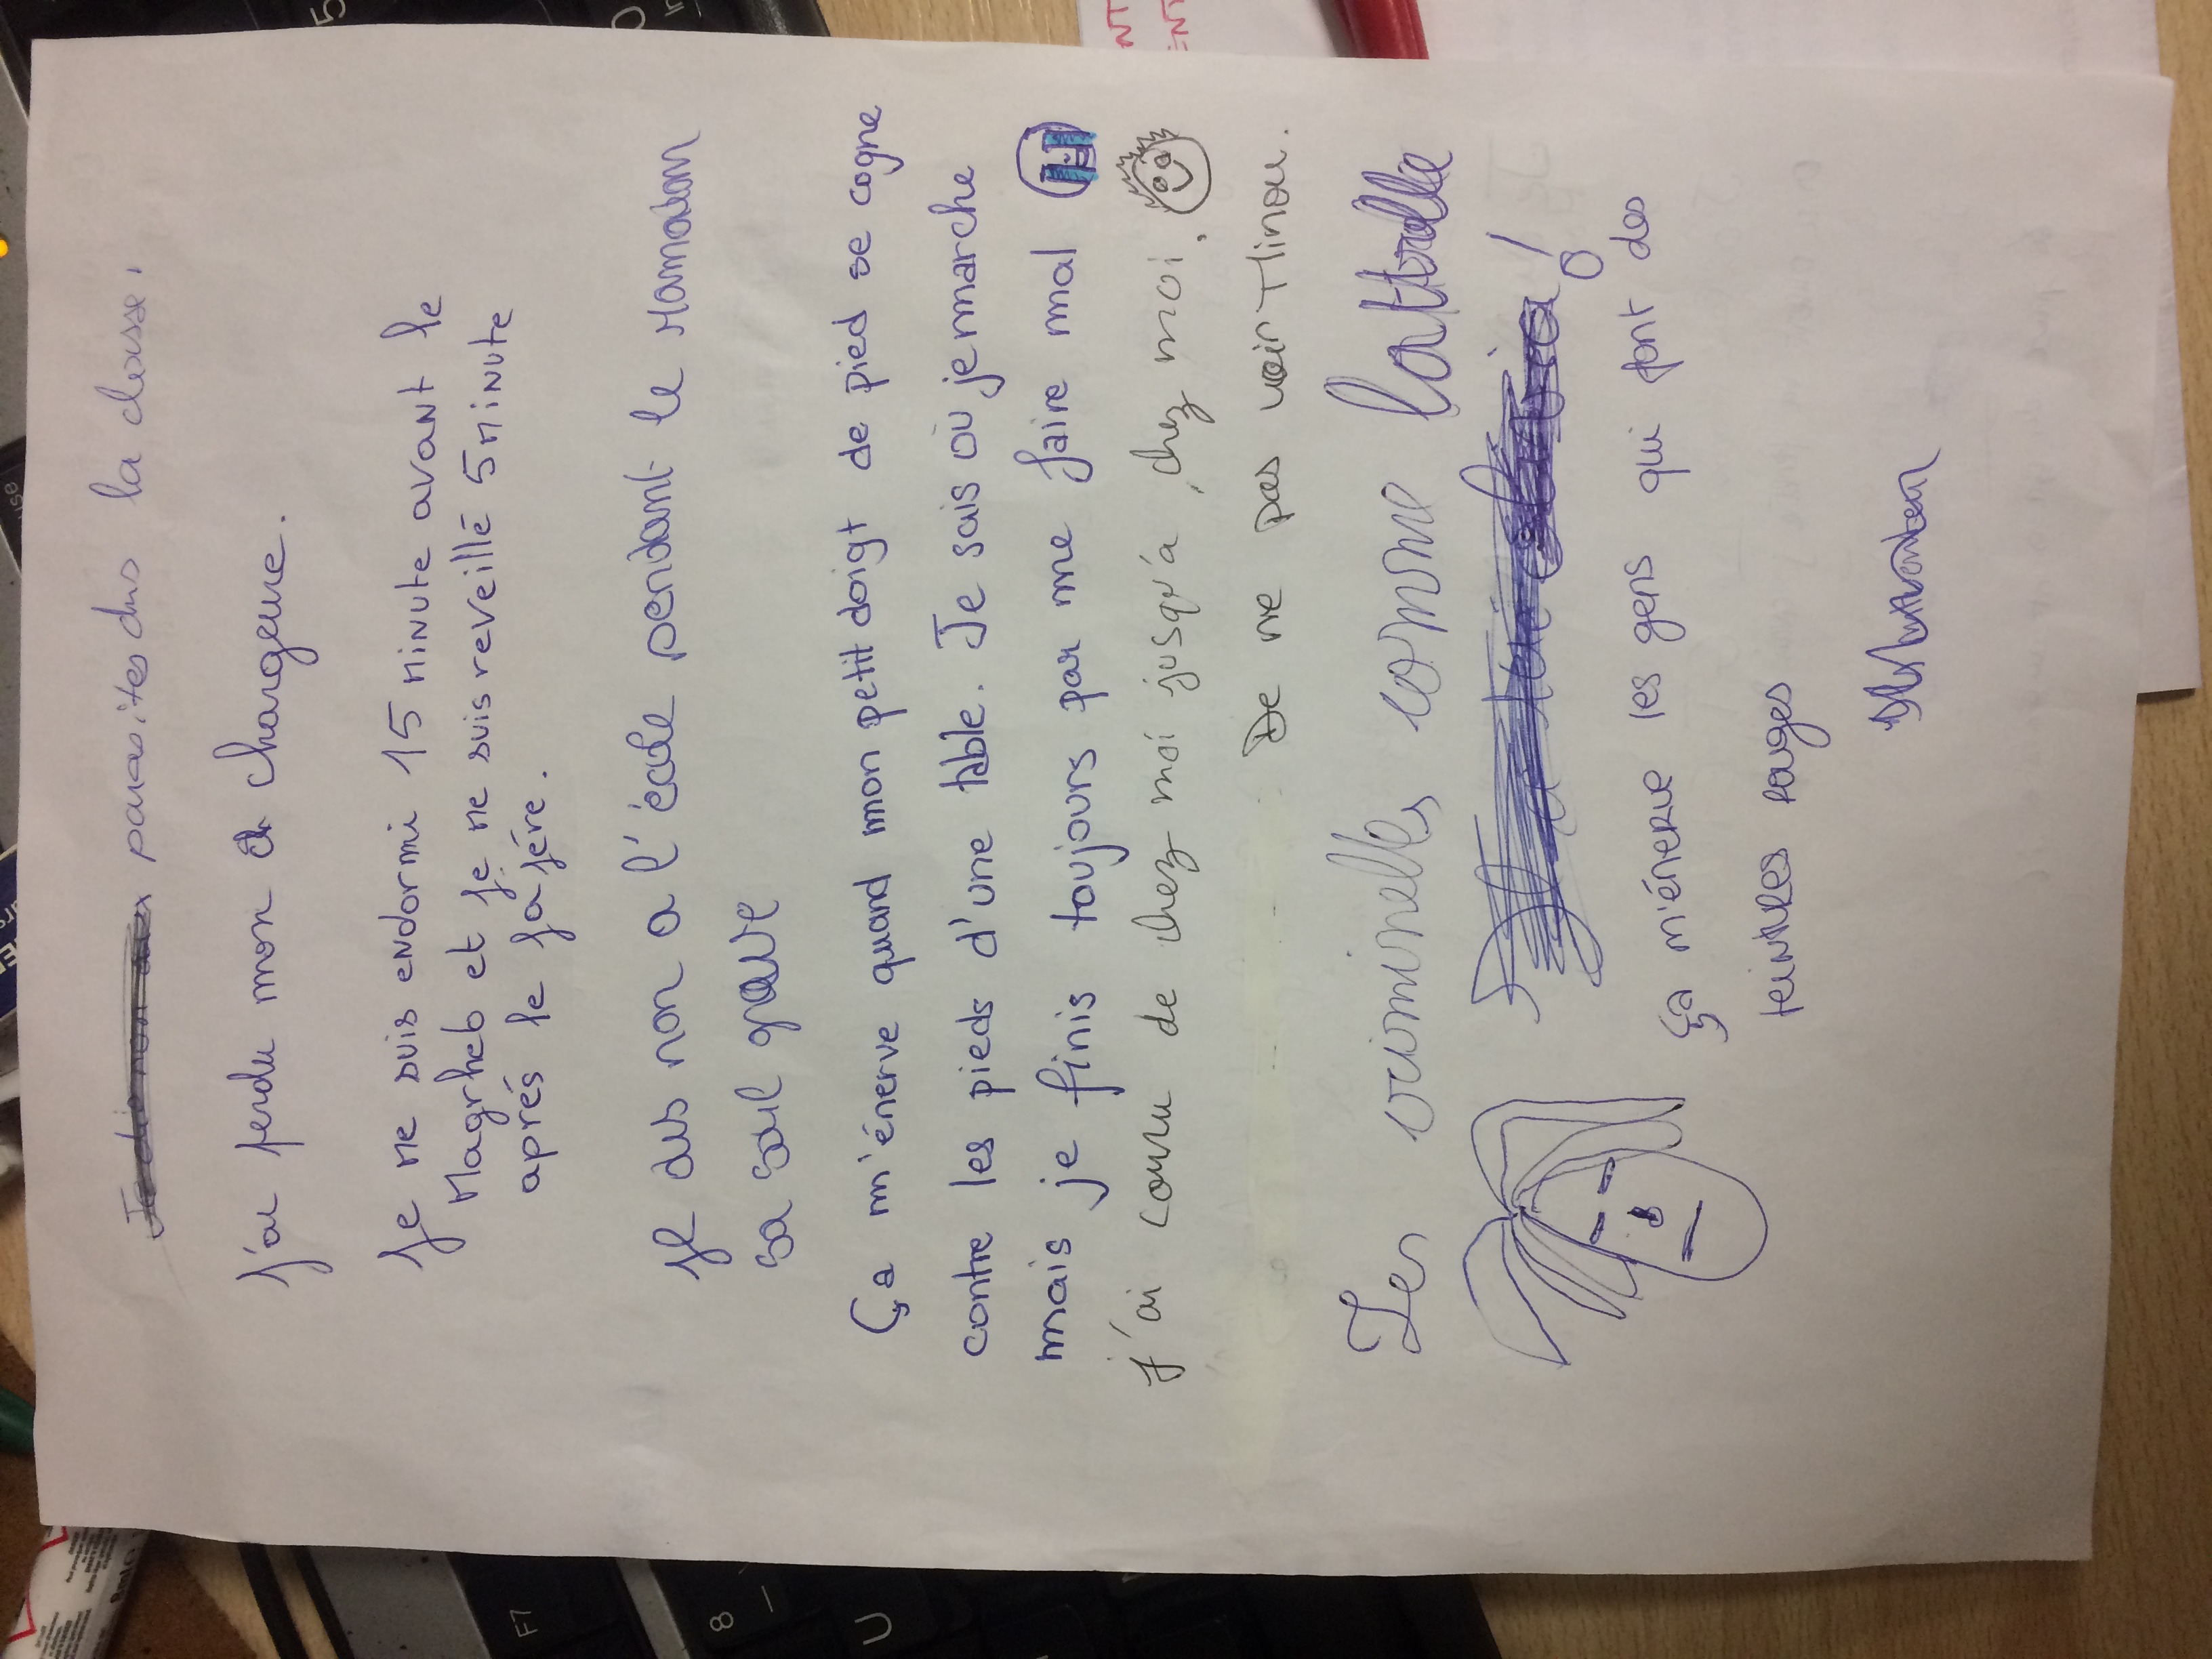 parasites dns la classe.
j'ai perdu mon chargeur.
Je me suis endormi 15 minute avant le
Magrheb et je me suis reveillé 5 minute
aprés le fajére.
je dis non a l'école pendant le Ramadan
sa soul grave
Ça m'énerve quand mon petit doigt de pied se cogne
contre les pieds d'une table. Je sais où je marche
mais je finis toujours par me faire mal
j'ai couru de chez moi jusqu'a, chez moi.
De ne pas voir Tlinou.
Les criminelles comme
Ça m'énerve les gens qui font des
teintures rouges
5
8
U
F7